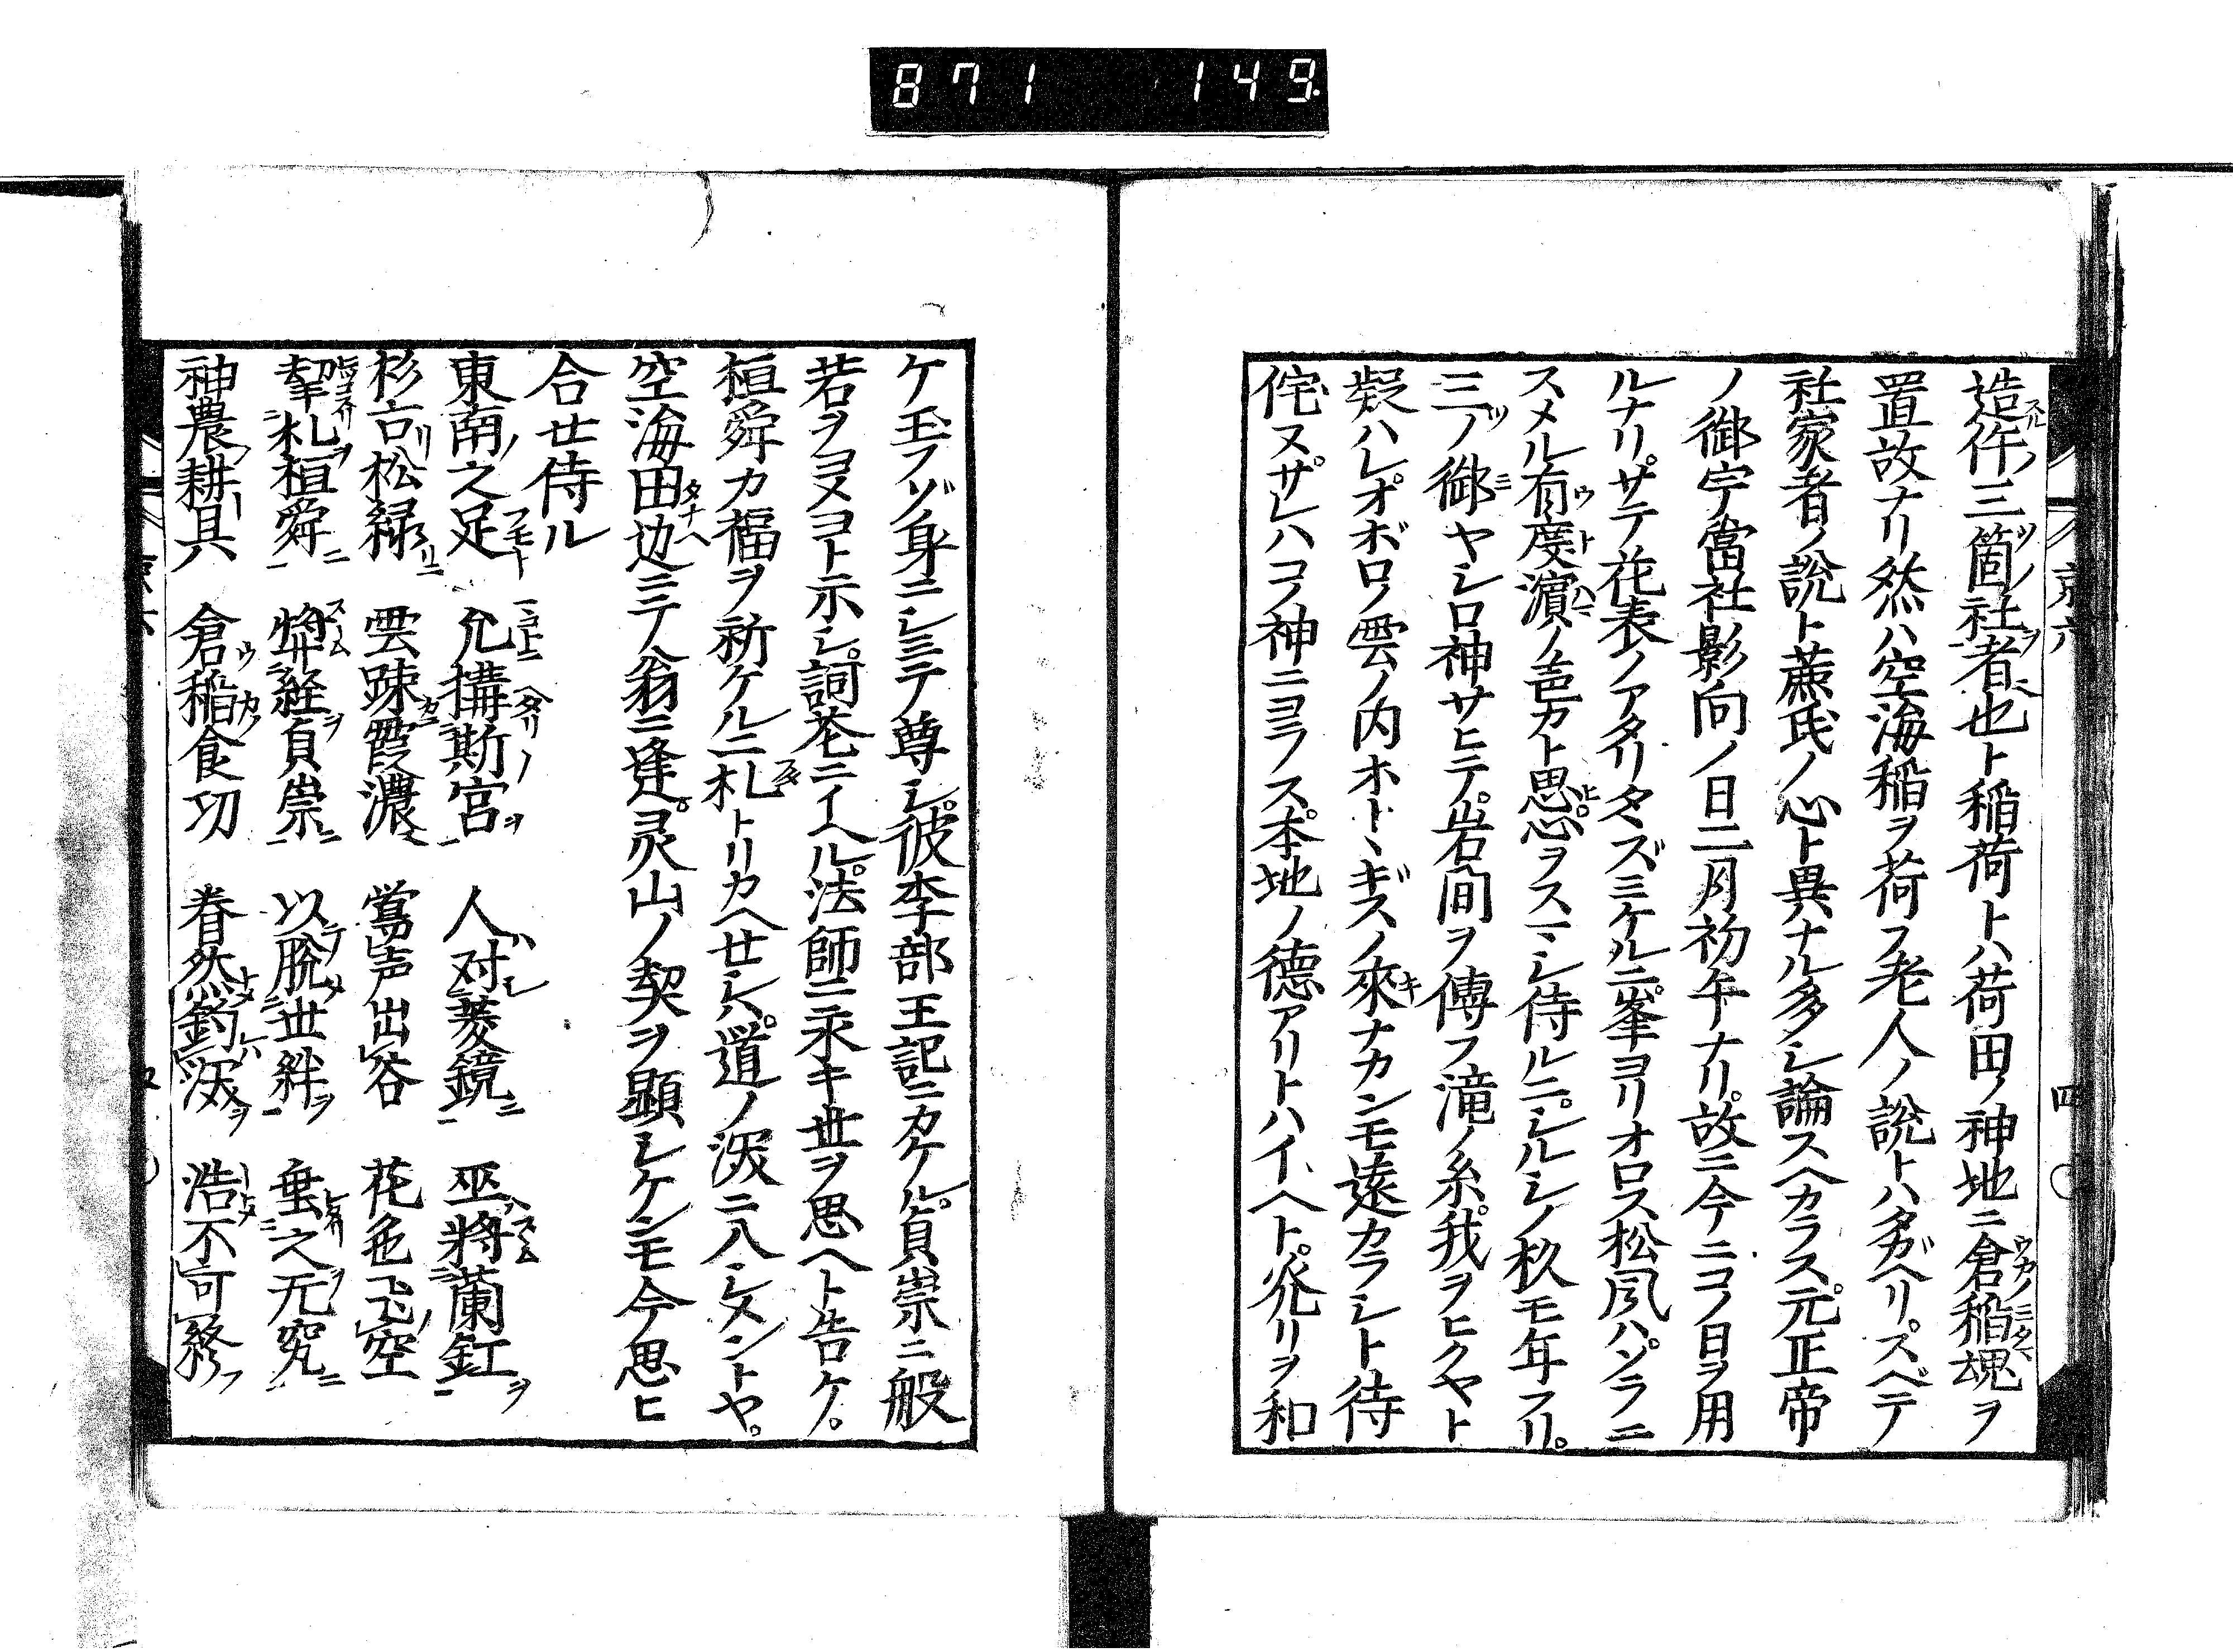 871 149
京六 四
造作三箇社者也ト稲荷トハ荷田ノ神地ニ倉稲魂ヲ
置故ナリ然ハ空海稲ヲ荷フ老人ノ説トハタガヘリ。スベテ
社家者ノ説ト蔗氏ノ心ト異ナル多シ論スヘカラス。元正帝
ノ御宇當社影向ノ日二月初午ナリ。故ニ今ニコノ日ヲ用
ルナリ。サテ花表ノアタリタヽズミケルニ。峯ヨリオロス松風ハソラニ
スメル有度濱ノ色カト思ヒ。心ヲスマシ侍ルニ。シルシノ杉モ年フリ。
三ノ御ヤシロ神サヒテ。岩間ヲ傳フ滝ノ糸。我ヲヒクヤト
疑ハレ。オボロノ雲ノ内ホトヽギスノ來ナカンモ遠カラシト待
侘ヌ。サレハコノ神ニヨラノス。本地ノ德アリトハイヘト。光リヲ和
ケ玉フゾ身ニシミテ尊シ。彼李部王記ニカケル。貟崇ニ般
若ヲヨメヨト示シ。詞花ニイヘル。法師ニ永キ世ヲ思ヘト告ケ。
桓舜カ福ヲ祈ケルニ札トリカヘセシハ。道ノ深ニハシメントヤ。
空海田辺ミテ人翁ニ逢。灵山ノ契ヲ顕シケンモ今思ヒ
合せ侍ル
東南之足 允搆斯宮 人対菱鏡 巫將蘭釭
杉古松緑 雲踈霞濃 鴬声出谷 花色飞空
掣札桓舜 將経貟崇 以脫世絆 垂之无究
神農耕具 倉稲食功 眷然釣深 浩不可終